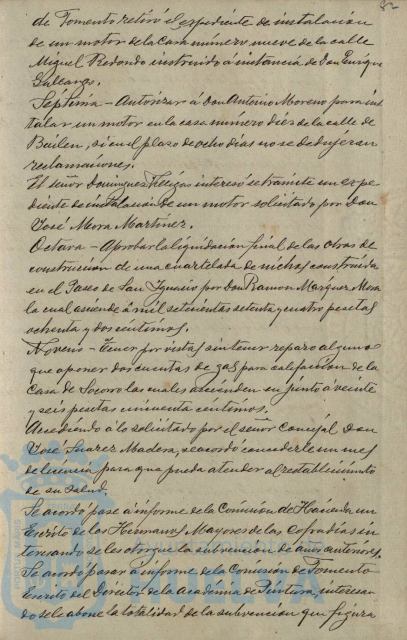 82
de Fomento retiró el expediente de instalación
de un motor de la casa número nueve de la calle
Miguel Redondo instruido á instancia de Don Enrique
Séptima - Autorizar á Don Antonio Moreno para ins
talar un motor en la casa número diez de la calle de
Bailen, si en el plazo de ocho dias no se dedujeran
reclamaciones.
El señor Dominguez interesó se tramite un expe
diente de instalación de un motor solicitado por Don
José Mora Martinez.
Octava - Aprobar la liquidación final de las obras de
construcción de una cuartelada de nichos construida
en el Paseo de San Ignacio por Don Ramon Marquez Mora
la cual asciende á mil setecientas setenta y cuatro pesetas
ochenta y dos centimos.
Noveno - Tener por vistas sin tener reparo alguno
que oponer dos cuentas de gas para calefaccion de la
Casa de Socorro las cuales ascienden en junto á veinte
y seis pesetas cincuenta centimos.
Accediendo á lo solicitado por el señor Concejal Don
José Suarez Madera, se acordó concederle un mes
de licencia para que pueda atender al restablecimiento
de su salud.
Se acordó pase á informe de la Comision de Hacienda un
Escrito de los Hermanos Mayores de las Cofradias in
teresando se les otorgue la subvencion de años anteriores.
Se acordó pasar á informe de la Comision de Fomento
Escrito del Director de la Academia de Pintura, interesan
do se le abone la totalidad de la subvencion que figura